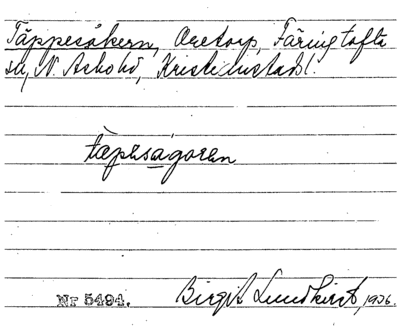 Täppesåkern, Oretorp, Färingtofta
sn, N. Åsbo hd, Kristianstads l.
täpesågoren
Nr 5494. Birgit Lundkvist, 1936.